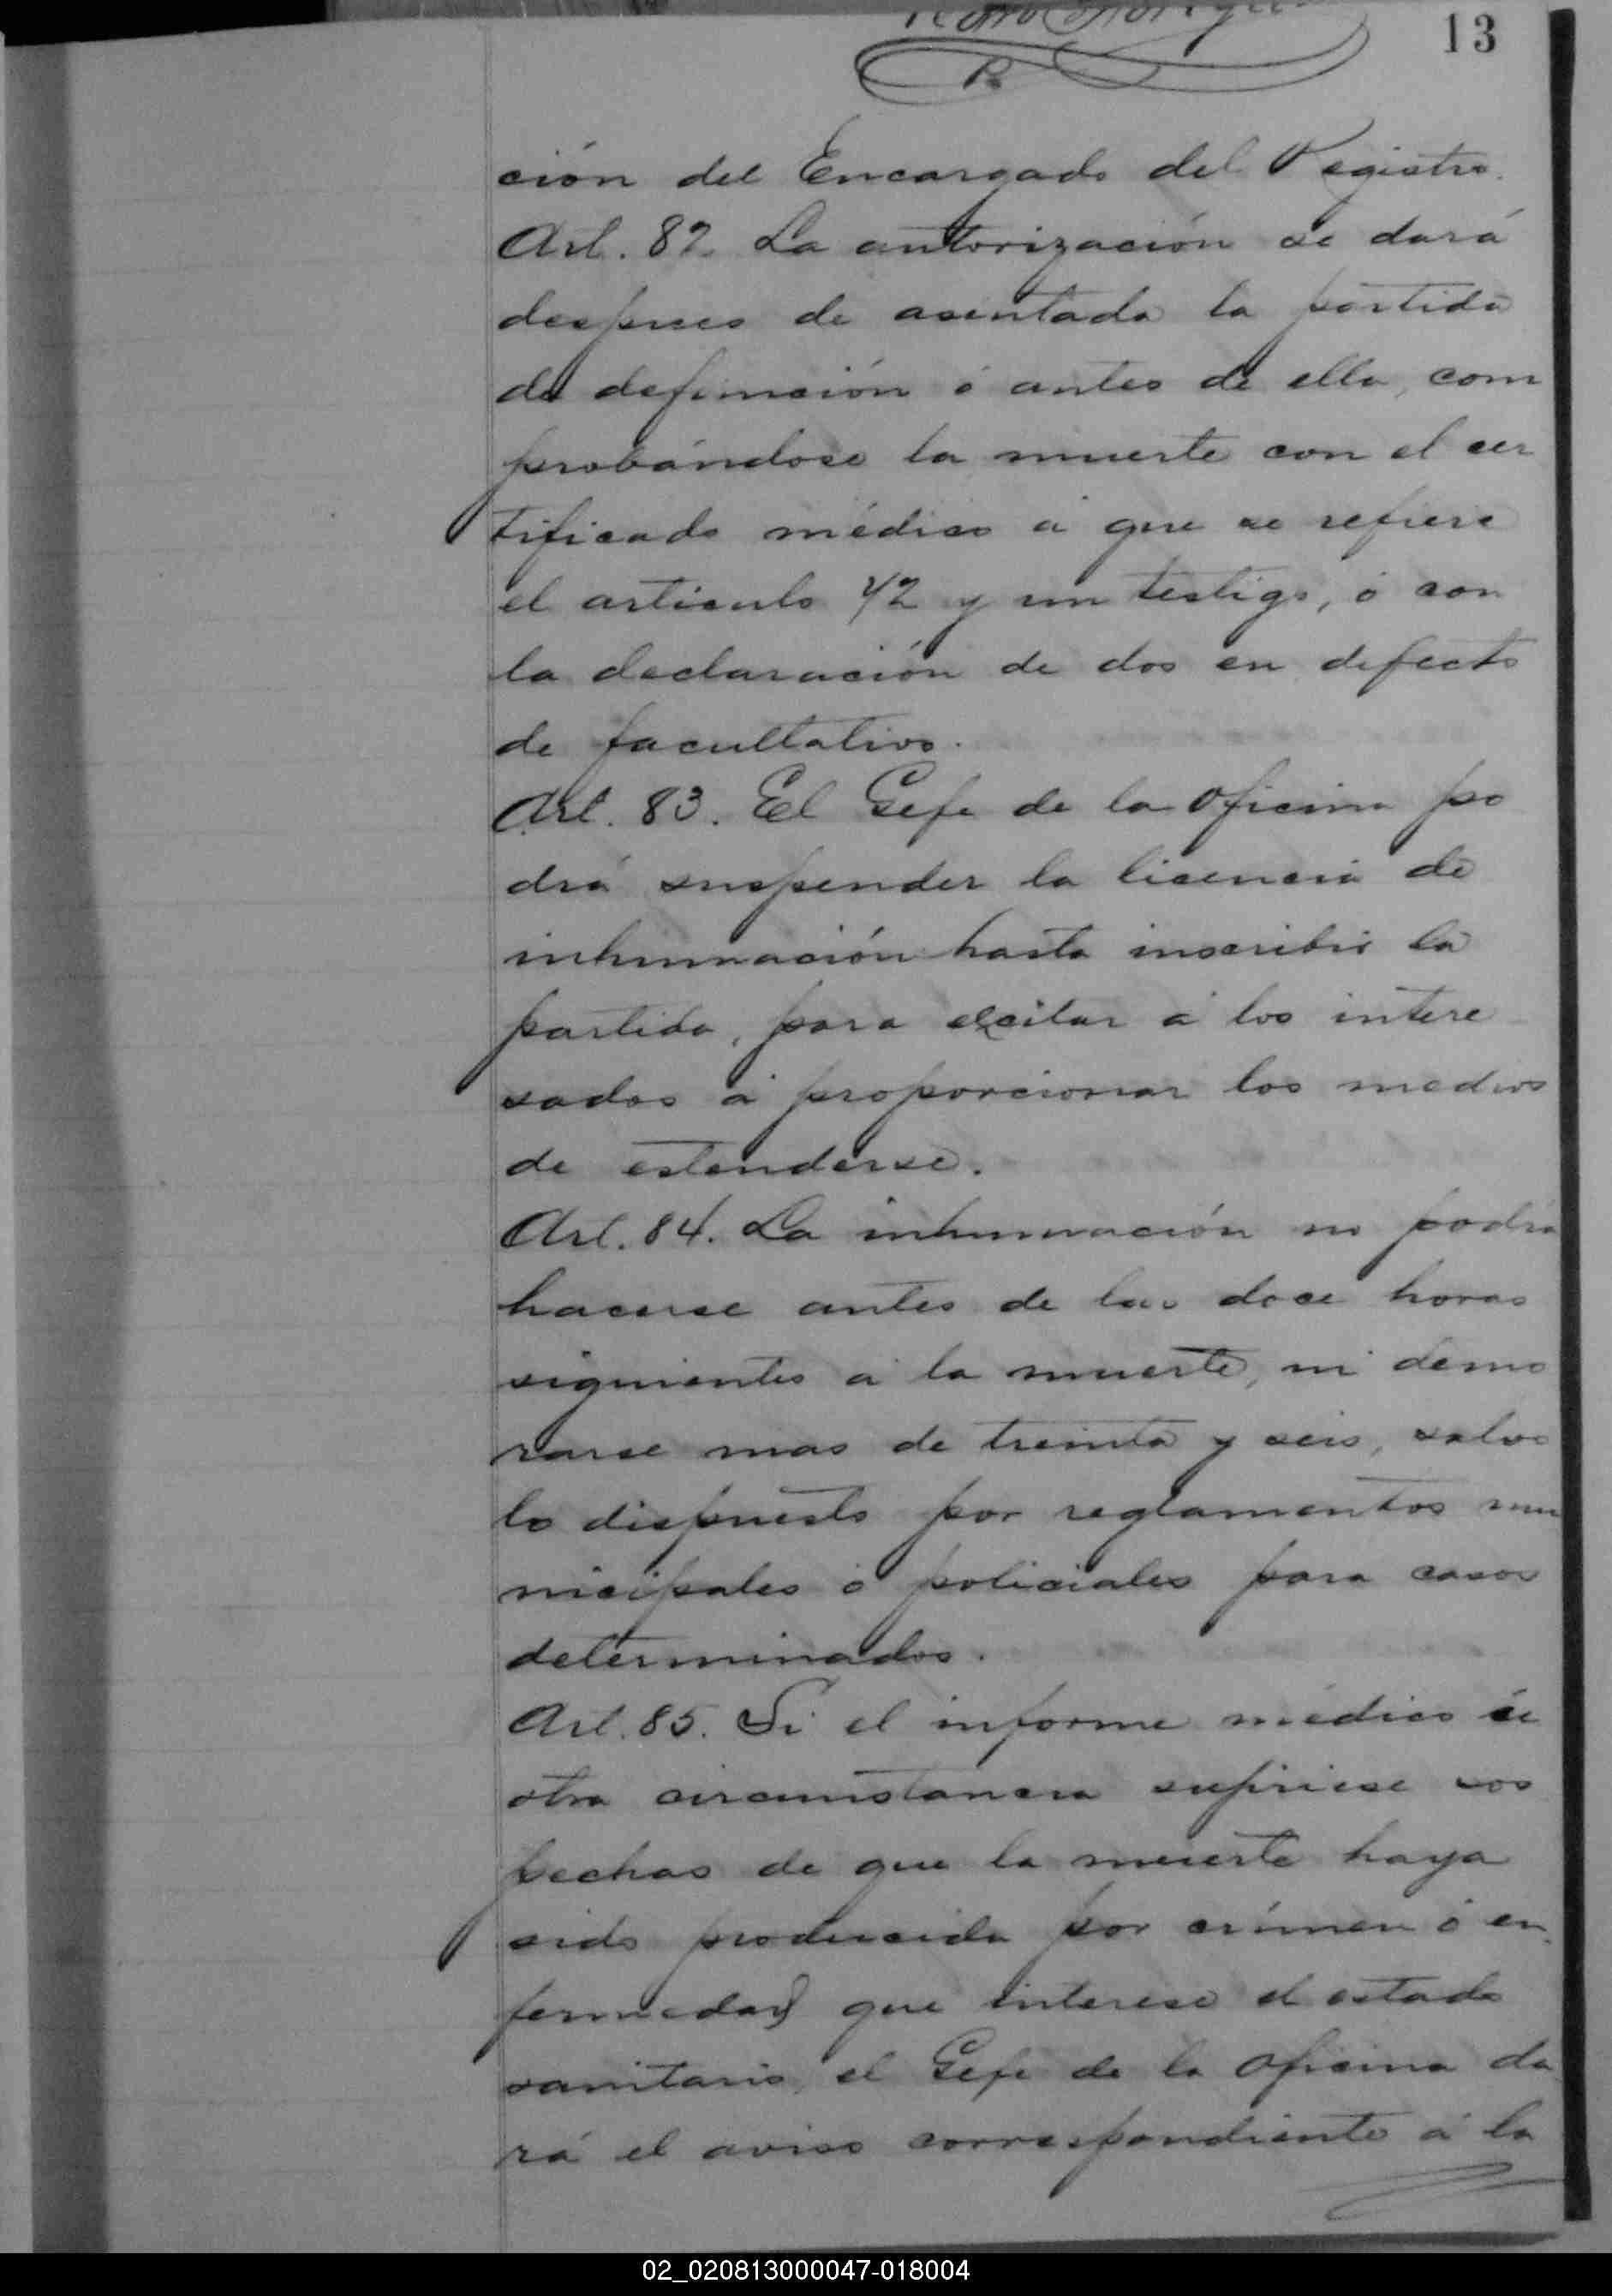 13
ción del Encargado del Registro.
Art. 82. La autorización se dará
despues de asentada la partida
de defunción ó antes de ella, com
probándose la muerte con el cer
tificado médico á que se refiere
el articulo 72 y un testigo, ó con
la declaración de dos en defecto
de facultativo.
Art. 83. El Gefe de la Oficina po
drá suspender la licencia de
inhumación hasta inscribir la
partida, para excitar á los intere
sados á proporcionar los medios
de estenderse.
Art. 84. La inhumación no podrá
hacerse antes de las doce horas
siguientes á la muerte, ni demo
rarse mas de treinta y seis, salvo
lo dispuesto por reglamentos mu
nicipales ó policiales para casos
determinados.
Art. 85. Si el informe médico ú
otra circunstancia sugiriese sos
pechas de que la muerte haya
sido producida por crímen ó en
fermedad que interese el estado
sanitario, el Gefe de la Oficina da
rá el aviso correspondiente á la
02_020813000047-018004